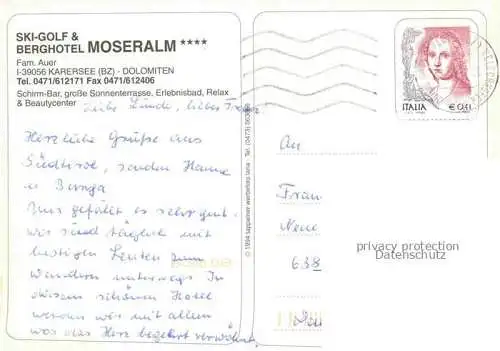 SKI-GOLF &
BERGHOTEL MOSERALM ****
Fam. Auer
I-39056 KARERSEE (BZ) - DOLOMITEN
Tel. 0471/612171 Fax 0471/612406
Schirm-Bar, große Sonnenterrasse, Erlebnisbad, Relax
& Beautycenter
Liebe Linde, lieber Franz
Herzliche Grüße aus
Südtirol, senden Hanne
u
Uns gefällt es sehr gut
wir sind täglich mit
lustigen Leuten zum
Wandern unterwegs In
diesem schönen Hotel
werden wir mit allem
was das Herz begehrt verwöhnt.
© 1994 tappeiner werbefoto lana Tel. (0473)
ITALIA
€ 0,41
An
Fran
Neue
638
privacy protection
Datenschutz